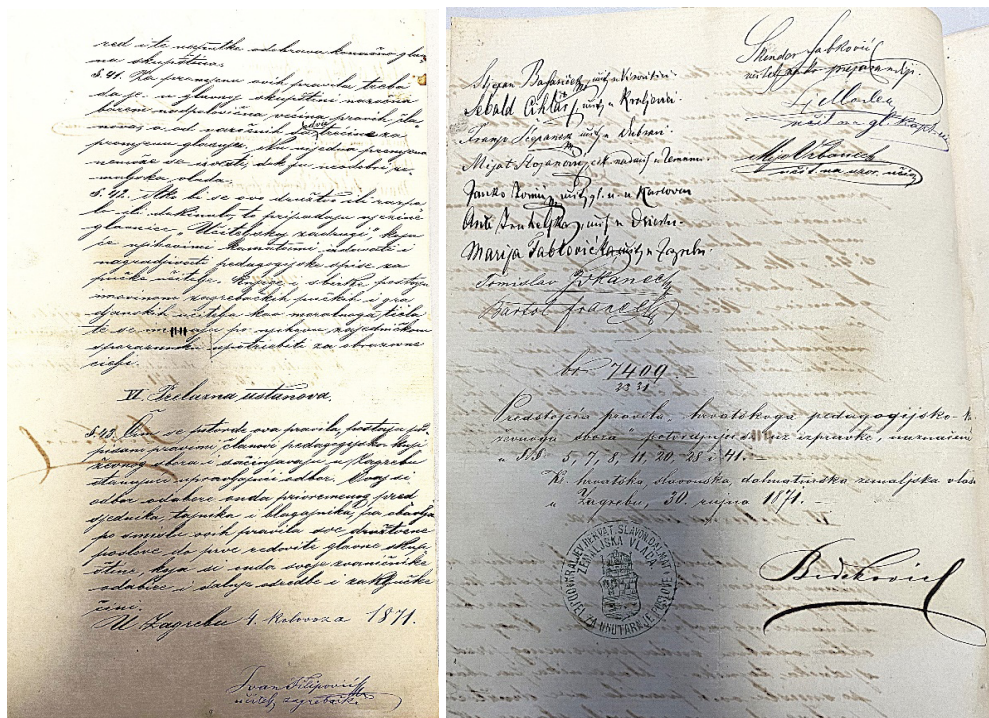 red i te naputke odobrava konačno glav
na skupština.
§. 41. Za promjenu ovih pravila treba
da je u glavnoj skupštini nazočna
barem nadpolovična većina pravih čla
novah, a od nazočnih dvie trećine za
promjenu glasuju. Al ni jedna promjena
nemože se izvesti, dok ju neodobri ze-
maljska vlada.
§. 42. Ako bi se ovo družtvo ili razpa
lo ili dokinulo, to pripadaju njezine
glavnice „Učiteljskoj zadrugi" koja
je njihovimi kamatami
nagradjivati pedagogijske spise za
pučke učitelje. Knjige i sbirke postaju
imovinom zagrebačkih pučkih i gra
djanskih učitelja kao moralnoga tiela
te se imaju po njihovu zajedničkom
sporazumku upotriebiti za obrazovne
cielji.
VI. Prelazna ustanova.
§. 43. Čim se potvrde ova pravila, postaju
podpisani pravimi članovi pedagogijsko-knji
ževnog sbora i sačinjavaju u Zagrebu
stanujući upravljajući odbor. Ovaj si
odbor odabere onda privremenog pred
sjednika, tajnika i blagajnika, pa obavlja
po smislu ovih pravila sve družtvene
poslove do prve redovite glavne skup
štine, koja si onda svoje zvaničnike
odabire i dalje odredbe i zaključke
čini.
U Zagrebu 4. kolovoza 1871.
Ivan Filipović
učitelj zagrebački
Skender Fabković
učitelj preparandiji
Stjepan Basariček, učit. u
Sebald Cihlar, učit. u Kraljevici
Franjo Stepanek učit. u Dubravi
Mijat Stojanović, u Zemunu.
Janko Tomić, učit. u Karlovcu
Ante Truhelka, učit. u Osieku.
Marija Fabkovićka učit. u Zagrebu
Tomislav Ivkanec
Bartol Francelj
br. 7409
3331
Predstojeća pravila „hrvatskoga pedagogijsko-k
ževnoga sbora" potvrdjuju se uz izpravke, naznačene
u §§. 5, 7, 8, 11, 20, 28 i 41. —
Kr. hrvatska, slavonska, dalmatinska zemaljska vlada
u Zagrebu, 30. rujna 1871. —
KRALJEV. HERVAT. SLAVON. DALMAT.
ZEMALJSKA VLADA
ODJEL ZA UNUTARNJE POSLOVE
Bedeković